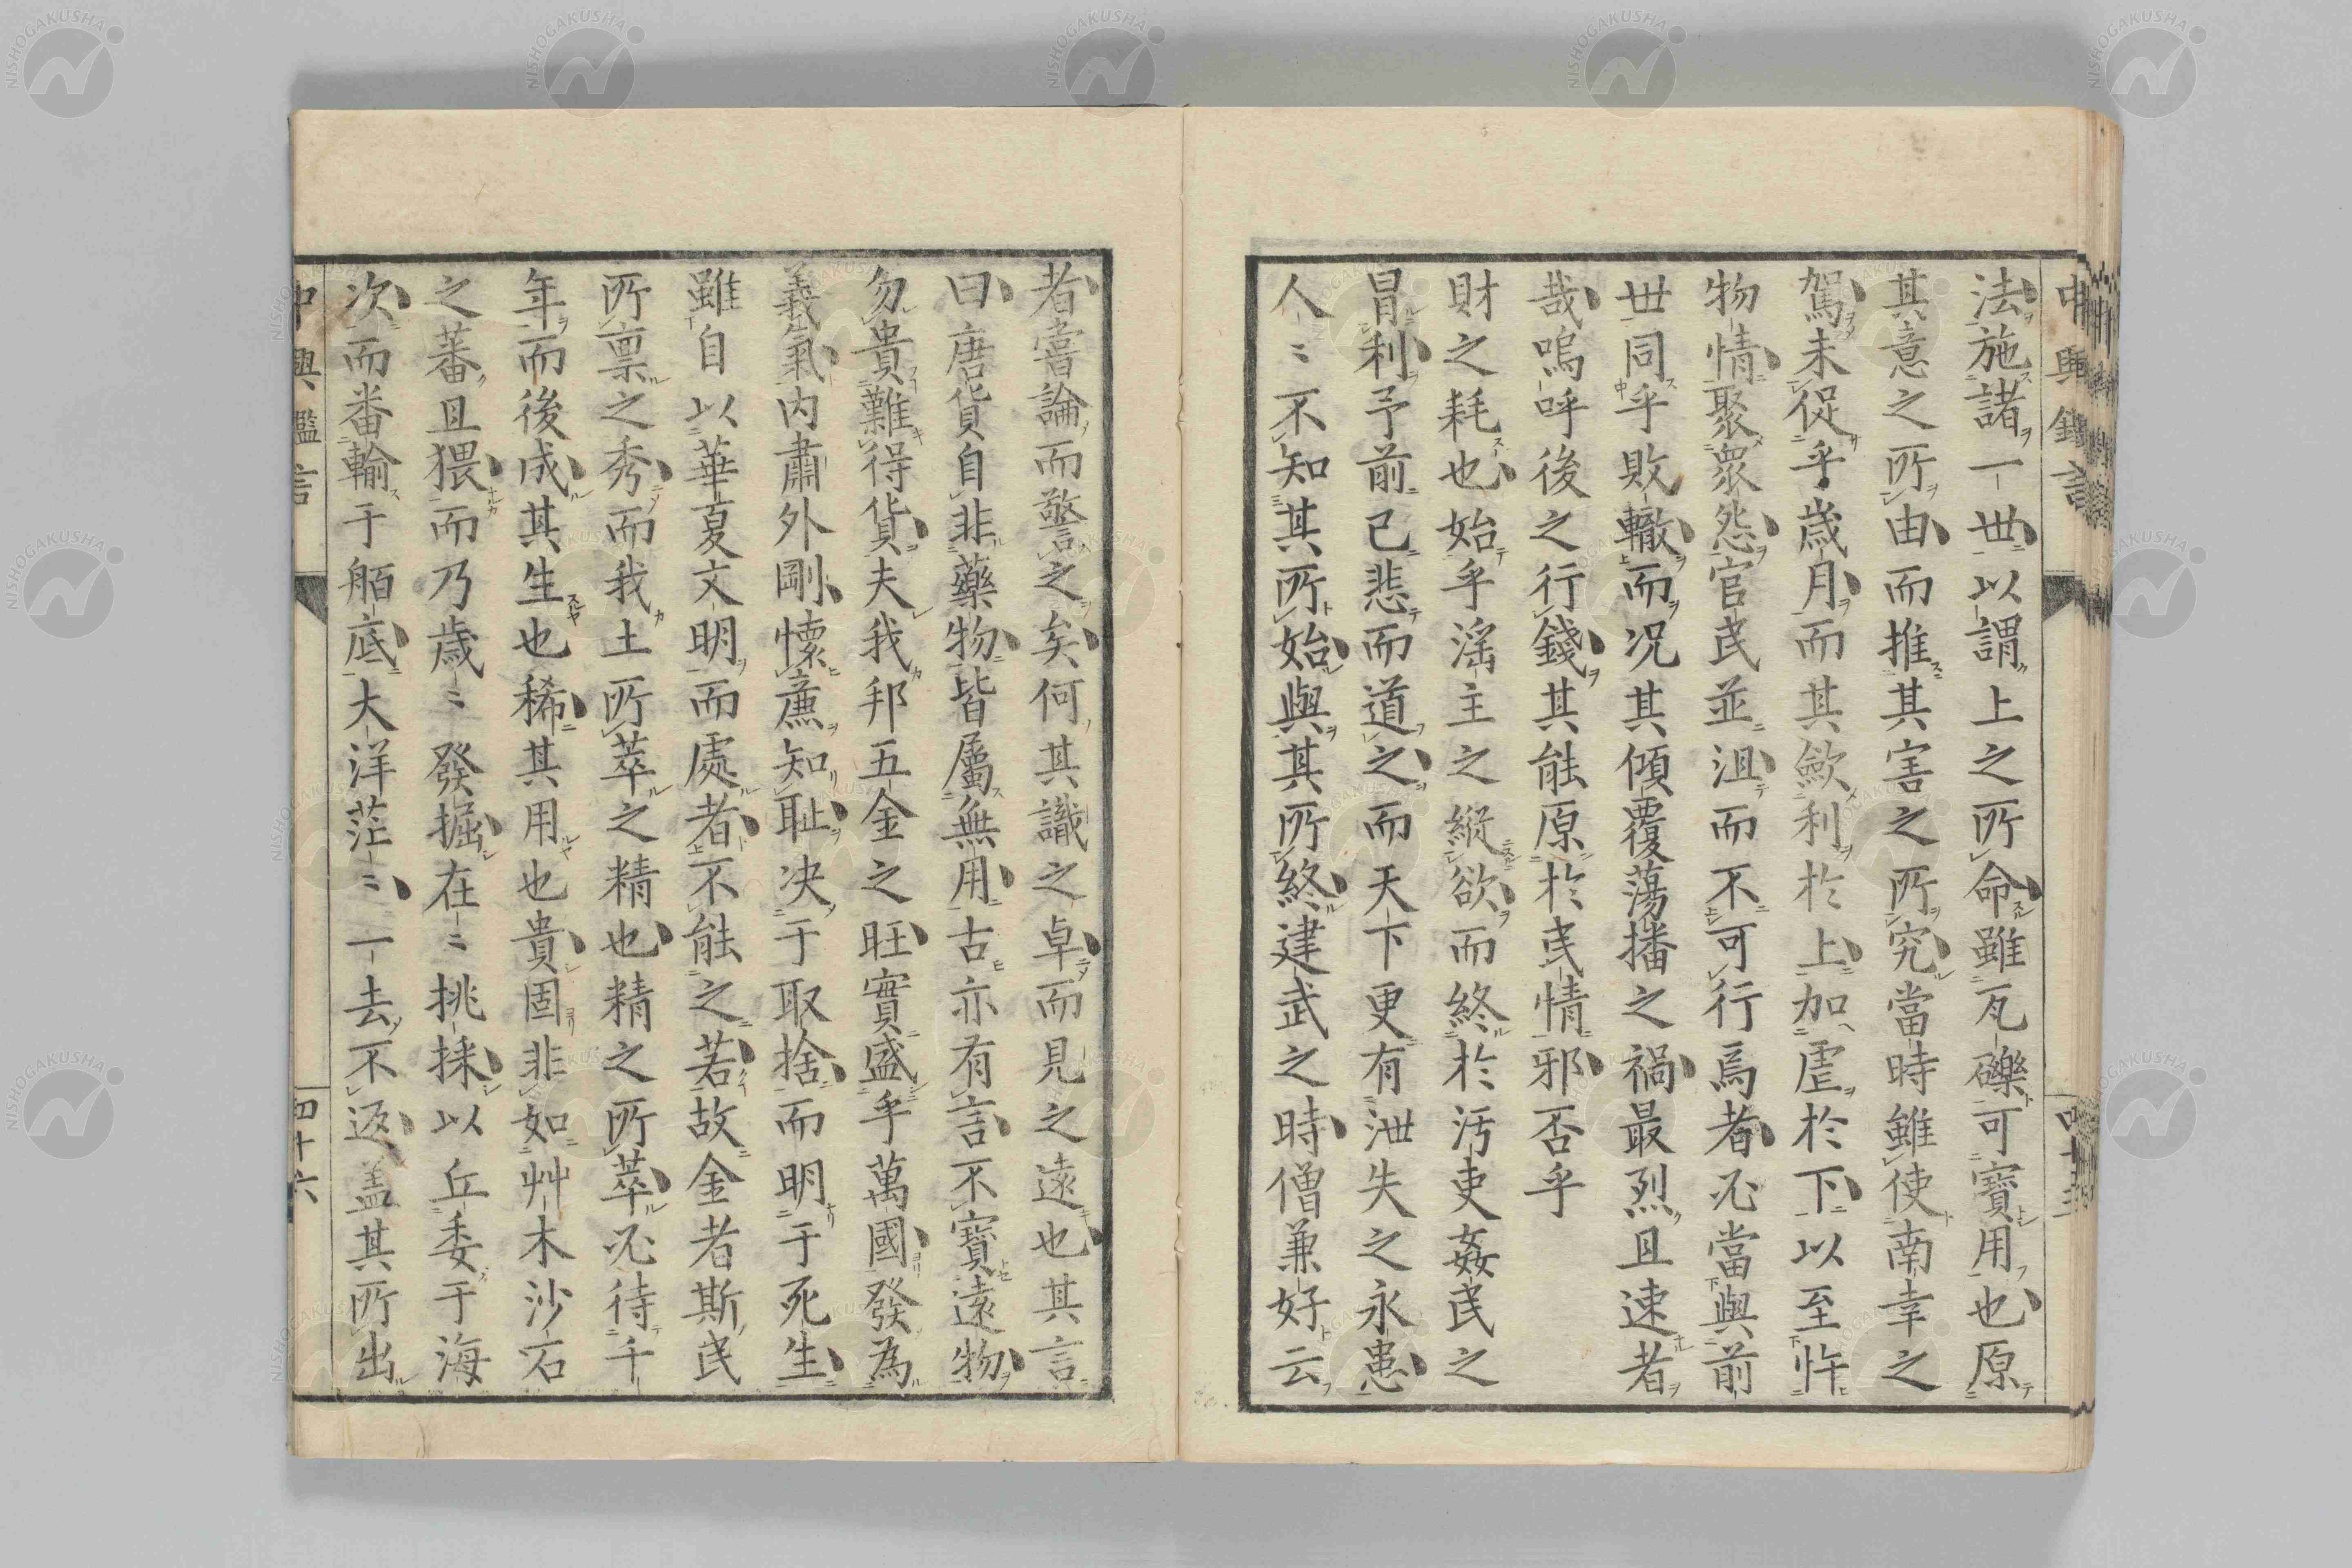 法施諸一世以謂上之所命雖瓦礫可寶用也原
其意之所由而推其害之所究當時雖使南幸之
駕未促乎歲月而其歛利於上加虐於下以至忤
物情聚衆怨官民並沮而不可行焉者必當與前
世同乎敗轍而况其傾覆蕩播之禍最烈且速者
哉嗚呼後之行錢其能原於民情邪否乎
財之耗也始乎滛主之縱欲而終於汚吏姦民之
冒利予前已悲而道之而天下更有泄失之永患
人〻不知其所始與其所終建武之時僧兼好云
者嘗論而警之矣何其識之卓而見之遠也其言
曰唐貨自非藥物皆屬無用古亦有言不寶遠物
勿貴難得貨夫我邦五金之旺實盛乎萬國發為
義氣内肅外剛懷亷知耻决于取捨而明于死生
雖自以華夏文明而處者不能之若故金者斯民
所禀之秀而我土所萃之精也精之所萃必待千
年而後成其生也稀其用也貴固非如艸木沙石
之蕃且猥而乃歲〻發掘在〻挑採以丘委于海
次而番輸于舶底大洋茫〻一去不返盖其所出
中興鑑言
四十六